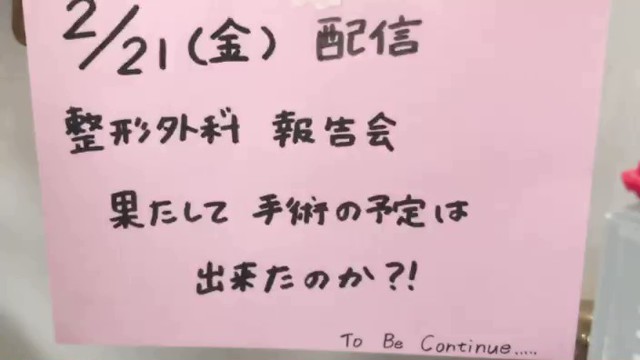 2/21(金) 配信
整形外科 報告会
果たして 手術の予定は
出来たのか?!
To Be Continue.....